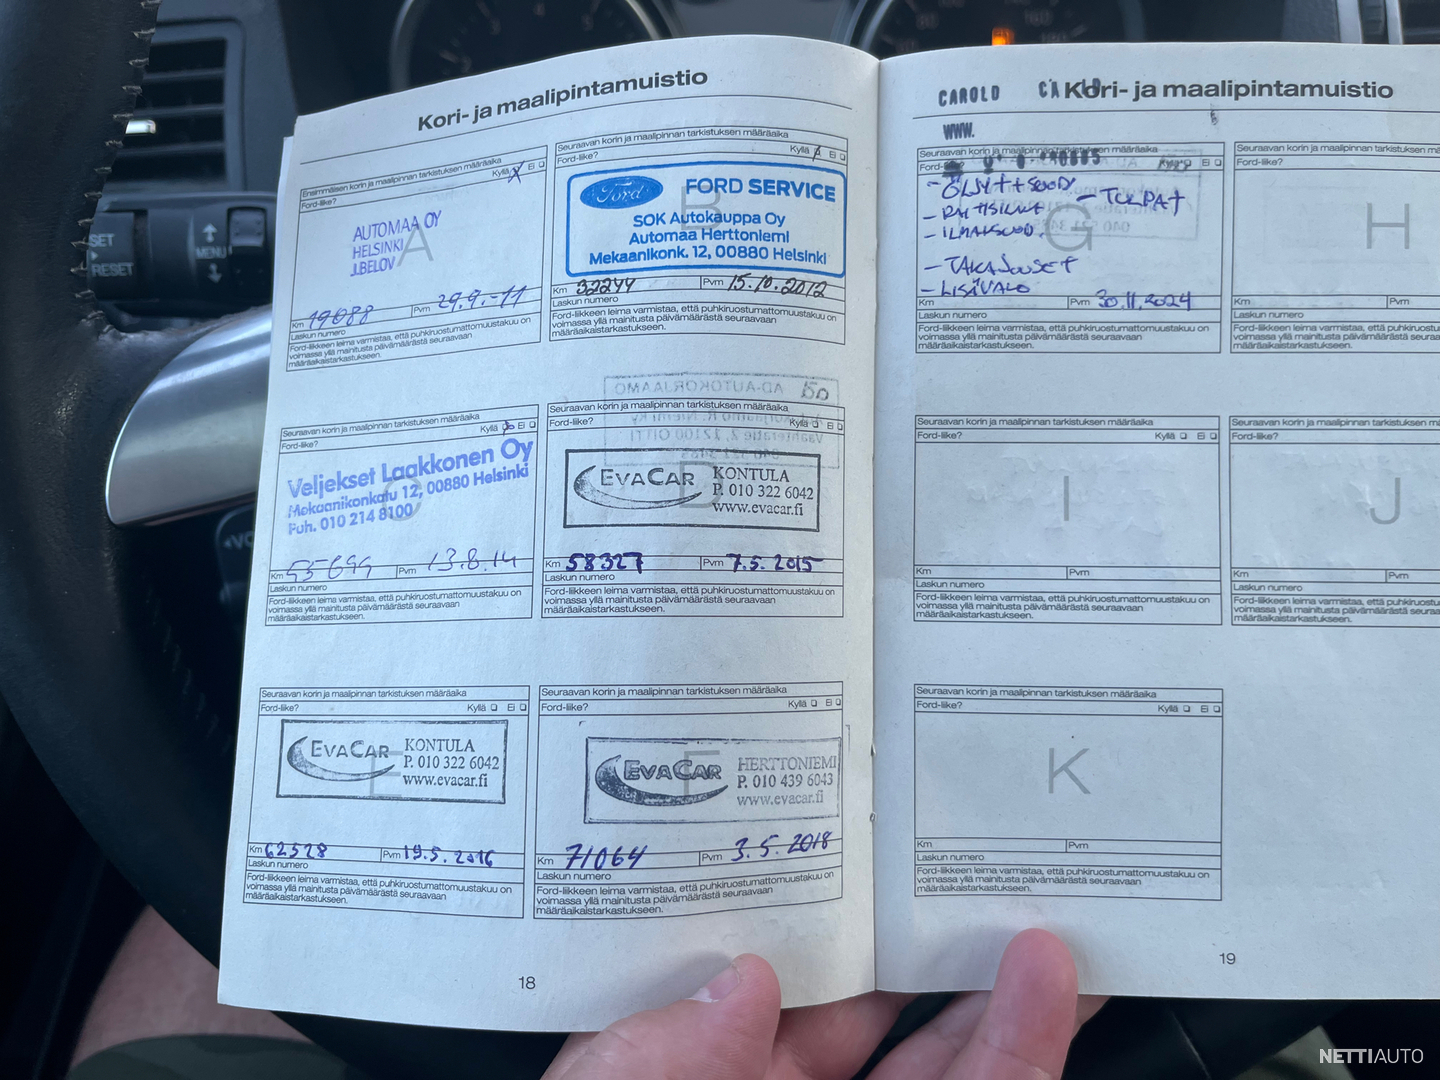 Kori- ja maalipintamuistio
Ensimmäisen korin ja maalipinnan tarkistuksen määräaika
Ford-liike? Kyllä X Ei
AUTOMAA OY
HELSINKI
J.BELOV
A
Km 19088 Pvm 29.9.-11
Laskun numero
Ford-liikkeen leima varmistaa, että puhkiruostumattomuustakuu on
voimassa yllä mainitusta päivämäärästä seuraavaan
määräaikaistarkastukseen.
Seuraavan korin ja maalipinnan tarkistuksen määräaika
Ford-liike? Kyllä Ei
B
Ford FORD SERVICE
SOK Autokauppa Oy
Automaa Herttoniemi
Mekaanikonk. 12, 00880 Helsinki
Km 32244 Pvm 15.10.2012
Laskun numero
Ford-liikkeen leima varmistaa, että puhkiruostumattomuustakuu on
voimassa yllä mainitusta päivämäärästä seuraavaan
määräaikaistarkastukseen.
Seuraavan korin ja maalipinnan tarkistuksen määräaika
Ford-liike? Kyllä Ei
Veljekset Laakkonen Oy
Mekaanikonkatu 12, 00880 Helsinki
Puh. 010 214 8100
C
Km 55699 Pvm 13.8.14
Laskun numero
Ford-liikkeen leima varmistaa, että puhkiruostumattomuustakuu on
voimassa yllä mainitusta päivämäärästä seuraavaan
määräaikaistarkastukseen.
Seuraavan korin ja maalipinnan tarkistuksen määräaika
Ford-liike? Kyllä Ei
D
EVACAR KONTULA
P. 010 322 6042
www.evacar.fi
Km 58327 Pvm 7.5.2015
Laskun numero
Ford-liikkeen leima varmistaa, että puhkiruostumattomuustakuu on
voimassa yllä mainitusta päivämäärästä seuraavaan
määräaikaistarkastukseen.
Seuraavan korin ja maalipinnan tarkistuksen määräaika
Ford-liike? Kyllä Ei
E
EVACAR KONTULA
P. 010 322 6042
www.evacar.fi
Km 62528 Pvm 19.5.2016
Laskun numero
Ford-liikkeen leima varmistaa, että puhkiruostumattomuustakuu on
voimassa yllä mainitusta päivämäärästä seuraavaan
määräaikaistarkastukseen.
Seuraavan korin ja maalipinnan tarkistuksen määräaika
Ford-liike? Kyllä Ei
F
EVACAR HERTTONIEMI
P. 010 439 6043
www.evacar.fi
Km 71064 Pvm 3.5.2018
Laskun numero
Ford-liikkeen leima varmistaa, että puhkiruostumattomuustakuu on
voimassa yllä mainitusta päivämäärästä seuraavaan
määräaikaistarkastukseen.
18
CAROLD
Kori- ja maalipintamuistio
WWW.
Seuraavan korin ja maalipinnan tarkistuksen määräaika
Ei
G
- TULPAT
- TAKAJOUSET
- LISÄVALO
Km Pvm 30.11.2024
Laskun numero
Ford-liikkeen leima varmistaa, että puhkiruostumattomuustakuu on
voimassa yllä mainitusta päivämäärästä seuraavaan
määräaikaistarkastukseen.
Seuraavan korin ja maalipinnan
Ford-liike?
H
Km Pvm
Laskun numero
Ford-liikkeen leima varmistaa, että
voimassa yllä mainitusta
määräaikaistarkastukseen.
Seuraavan korin ja maalipinnan tarkistuksen määräaika
Ford-liike? Kyllä Ei
I
Km Pvm
Laskun numero
Ford-liikkeen leima varmistaa, että puhkiruostumattomuustakuu on
voimassa yllä mainitusta päivämäärästä seuraavaan
määräaikaistarkastukseen.
Seuraavan korin ja maalipinnan
Ford-liike?
J
Km Pvm
Laskun numero
Ford-liikkeen leima varmistaa, että
voimassa yllä mainitusta
määräaikaistarkastukseen.
Seuraavan korin ja maalipinnan tarkistuksen määräaika
Ford-liike? Kyllä Ei
K
Km Pvm
Laskun numero
Ford-liikkeen leima varmistaa, että puhkiruostumattomuustakuu on
voimassa yllä mainitusta päivämäärästä seuraavaan
määräaikaistarkastukseen.
19
SET
RESET
MENU
NETTIAUTO